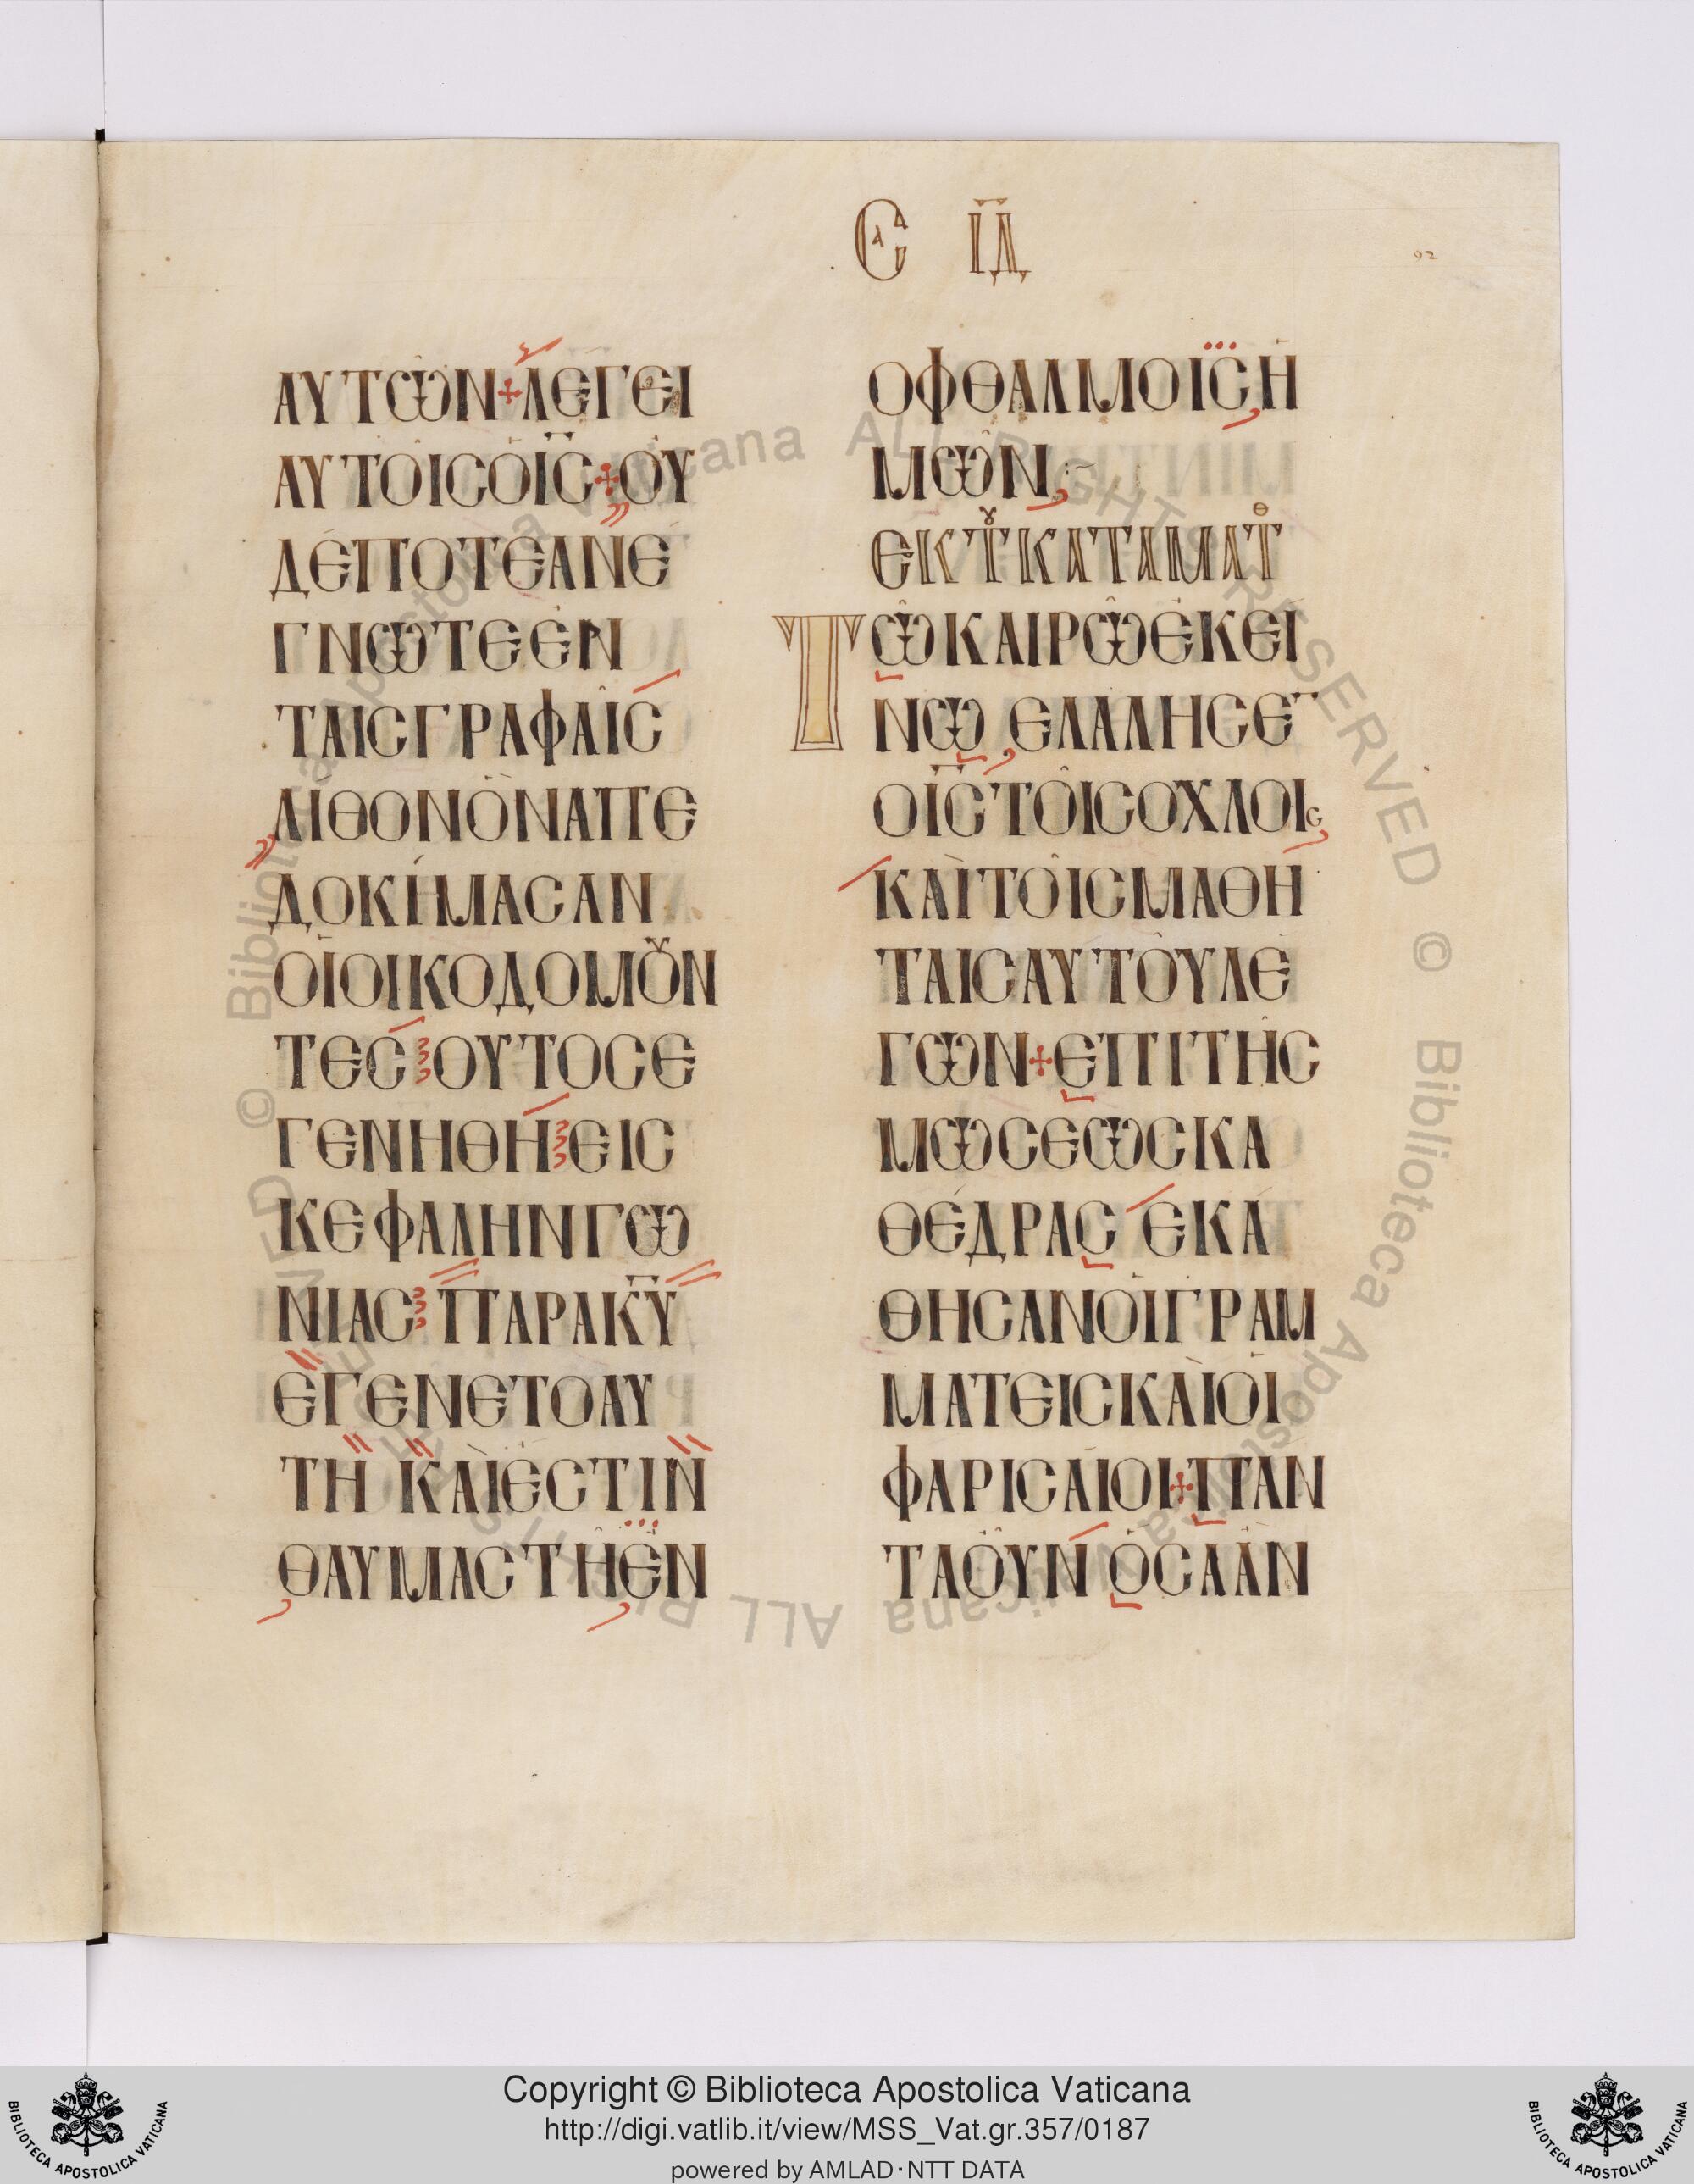 Є ΙΔ
92
ΑΥΤῶΝ+ΛΕΓΕΙ
ΑΥΤΟΙCΟΙ̅C̅+ΟΥ
ΔΕΠΟΤΕΑΝΕ
ΓΝωΤΕΕΝ
ΤΑΙCΓΡΑΦΑΙC
ΛΙΘΟΝΟΝΑΠΕ
ΔΟΚΗΜΑCΑΝ
ΟΙΟΙΚΟΔΟΜȣΝ
ΤΕC ΟΥΤΟCΕ
ΓΕΝΗΘΗ ΕΙC
ΚΕΦΑΛΗΝΓω
ΝΙΑC ΠΑΡΑΚ̅Υ̅
ΕΓΕΝΕΤΟΑΥ
ΤΗ ΚΑΙΕCΤΙΝ
ΘΑΥΜΑCΤΗΕΝ
ΟΦΘΑΛΜΟΙCΗ
ΜωΝ
ΕΚΤȣΚΑΤΑΜΑΤΘ
ΤωΚΑΙΡωΕΚΕΙ
Νω ΕΛΑΛΗCΕ̅
ΟΙ̅C̅ΤΟΙCΟΧΛΟΙC
ΚΑΙΤΟΙCΜΑΘΗ
ΤΑΙCΑΥΤΟΥΛΕ
ΓωΝ+ΕΠΙΤΗC
ΜωCΕωCΚΑ
ΘΕΔΡΑC ΕΚΑ
ΘΗCΑΝΟΙΓΡΑΜ
ΜΑΤΕΙCΚΑΙΟΙ
ΦΑΡΙCΑΙΟΙ+ΠΑΝ
ΤΑΟΥΝ ΟCΑΑΝ
© Biblioteca Apostolica Vaticana ALL RIGHTS RESERVED © Biblioteca Apostolica Vaticana ALL RIGHTS RESERVED
Copyright © Biblioteca Apostolica Vaticana
http://digi.vatlib.it/view/MSS_Vat.gr.357/0187
powered by AMLAD·NTT DATA
BIBLIOTECA APOSTOLICA VATICANA
BIBLIOTECA APOSTOLICA VATICANA